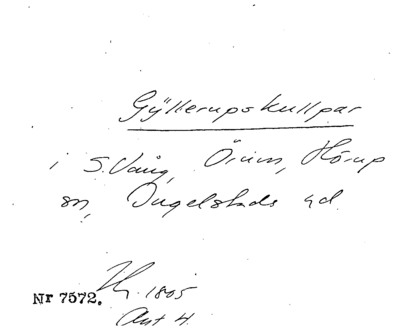 Gyllerupskullpar
i S. Vång, Örum, Hörup
sn, Ingelstads hd.
Nr 7572.
1805
Ant 4.